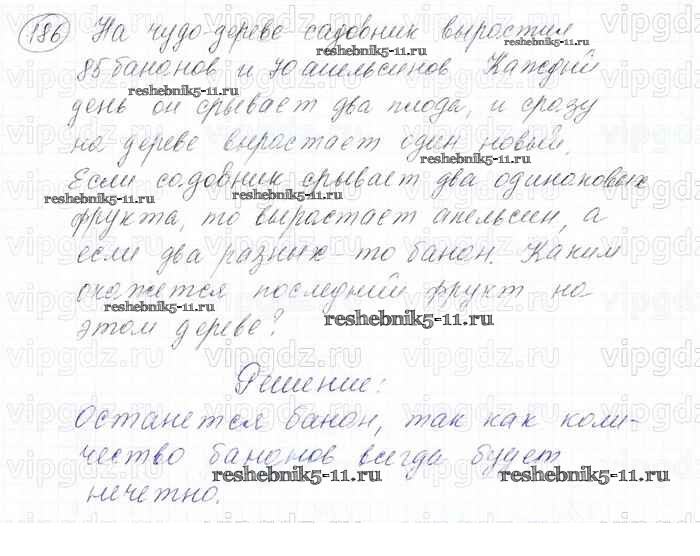 186 На чудо-дереве садовник вырастил
reshebnik5-11.ru
85 бананов и 70 апельсинов Каждый
reshebnik5-11.ru
день он срывает два плода, и сразу
на дереве вырастает один новый.
reshebnik5-11.ru
Если садовник срывает два одинаковых
reshebnik5-11.ru reshebnik5-11.ru
фрукта, то вырастает апельсин, а
если два разных - то банан. Каким
окажется последний фрукт на
reshebnik5-11.ru
этом дереве?
reshebnik5-11.ru
Решение:
останется банан, так как коли-
чество бананов всегда будет
reshebnik5-11.ru reshebnik5-11.ru
нечетно.
vipgdz.ru